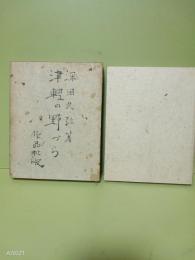 深田久弥著
津軽の野づら
作品社版